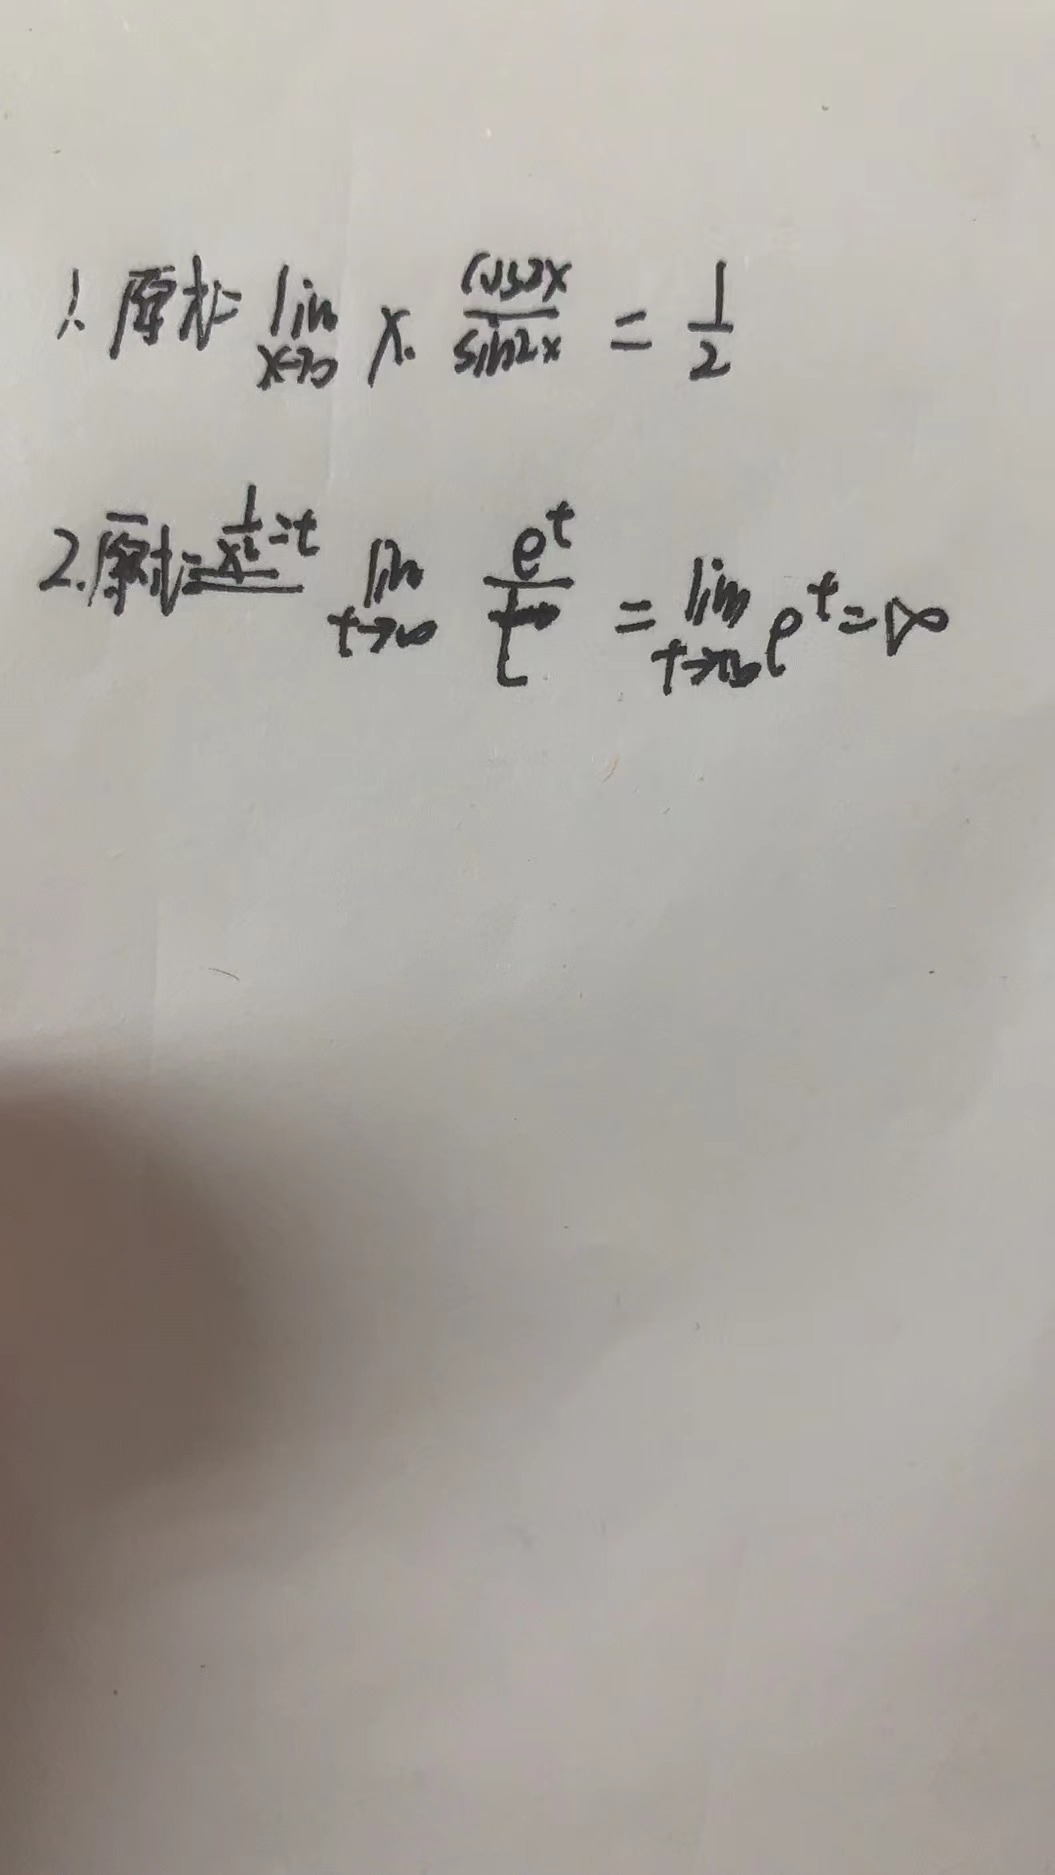 1. 原式= lim x→0 x· cos2x/sin2x = 1/2
2. 原式= 1/x²=t lim t→∞ e^t/t = lim t→∞ e^t = ∞